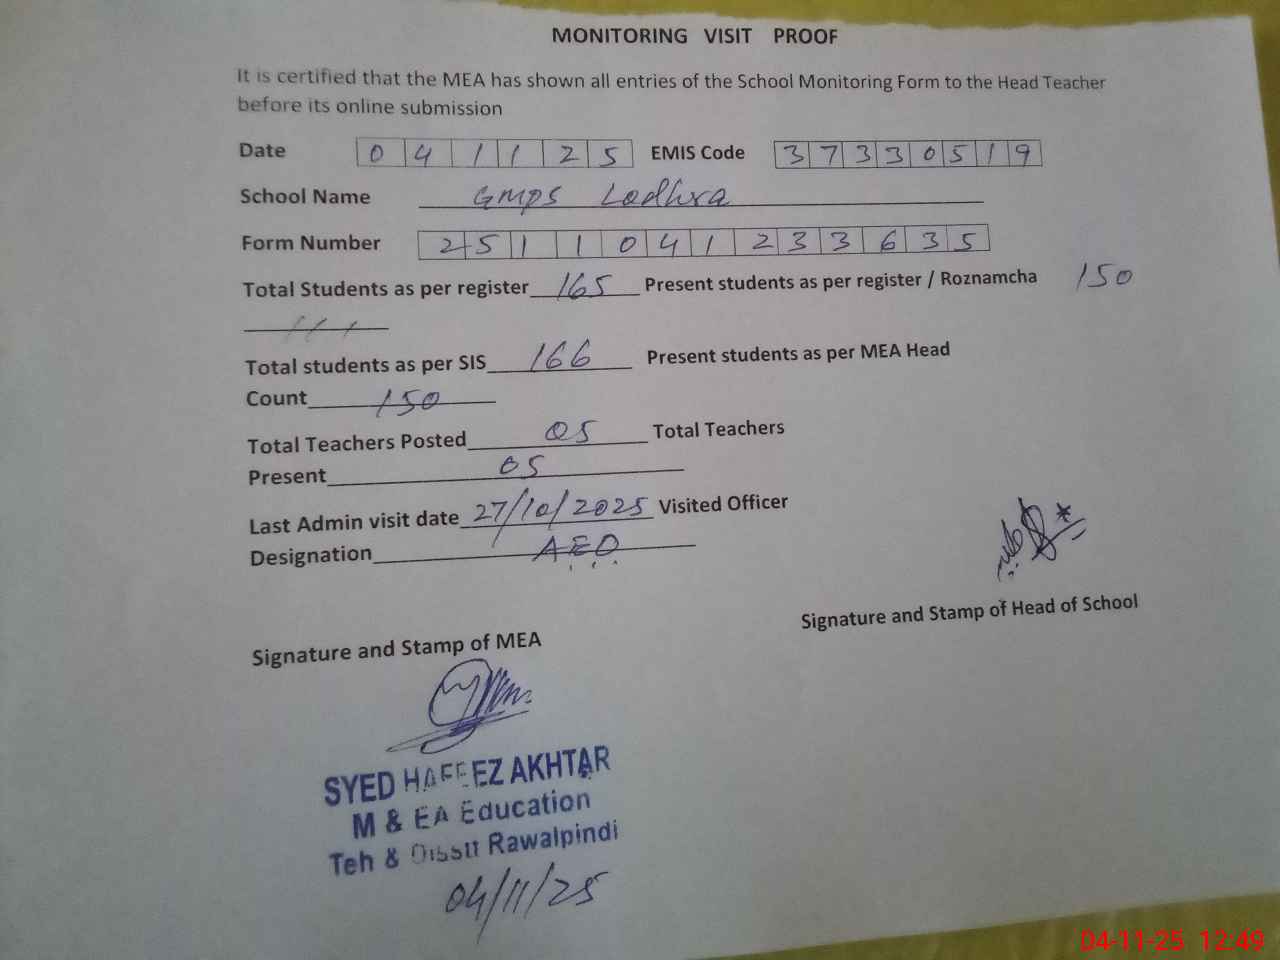 MONITORING VISIT PROOF
It is certified that the MEA has shown all entries of the School Monitoring Form to the Head Teacher
before its online submission
Date 041125 EMIS Code 37330519
School Name GMPS Ladhra
Form Number 2511041233635
Total Students as per register 165 Present students as per register / Roznamcha 150
Total students as per SIS 166 Present students as per MEA Head
Count 150
Total Teachers Posted 05 Total Teachers
Present 05
Last Admin visit date 27/10/2025 Visited Officer
Designation AEO
Signature and Stamp of Head of School
Signature and Stamp of MEA
SYED HAFEEZ AKHTAR
M & EA Education
Teh & Disstt Rawalpindi
04/11/25
04-11-25 12:49